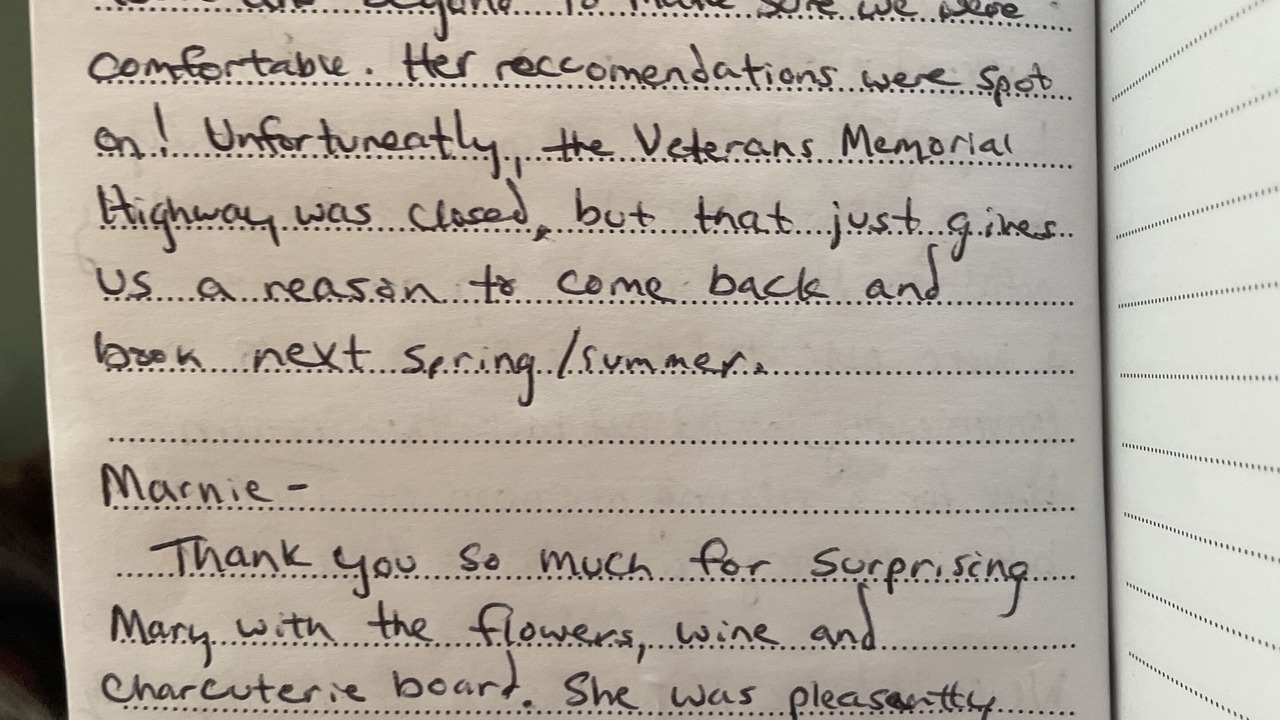 to make sure we were
comfortable. Her reccomendations were spot
on! Unfortuneatly, the Veterans Memorial
Highway was closed, but that just gives
us a reason to come back and
book next spring/summer.
Marnie -
Thank you so much for surprising
Mary with the flowers, wine and
charcuterie board. She was pleasantly